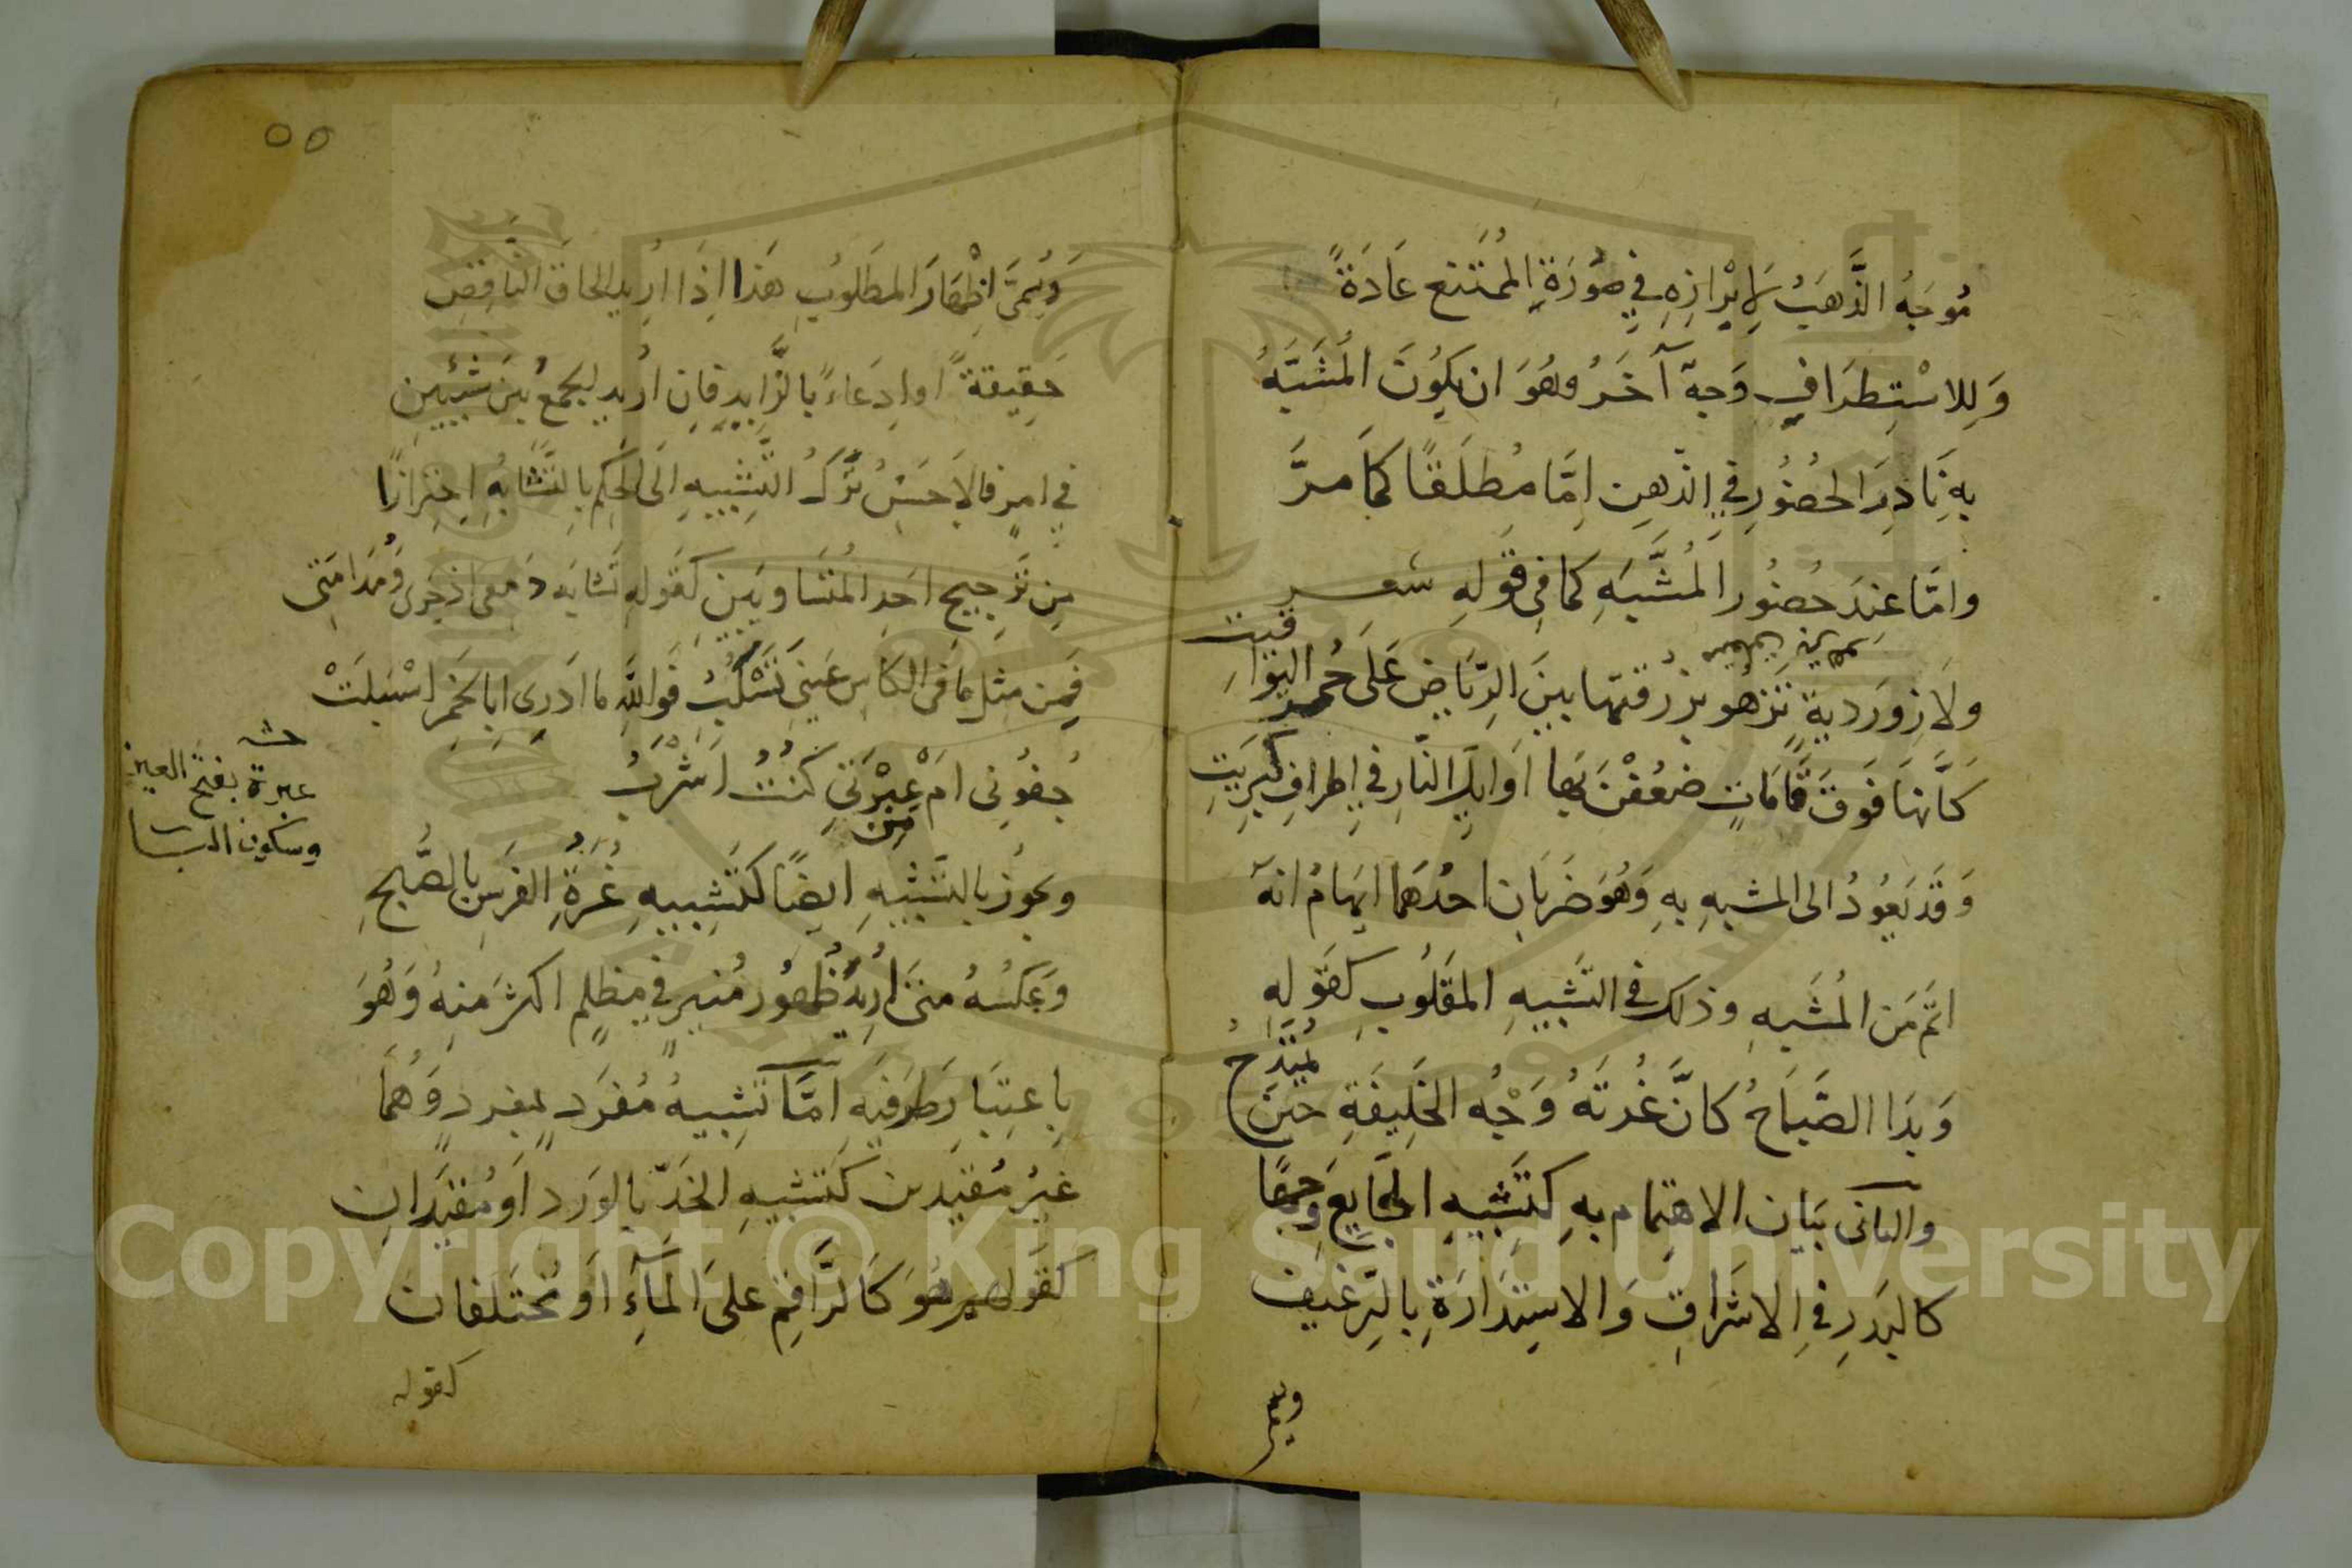 مُوجَهُ الذَّهَبُ لِإبْرَازِهِ فِي صُورَةِ المُمْتَنِع عَادَةً
وَلِلاسْتِطرَافِ وَجهٌ آخَرُ وهُوَ ان يكُونَ المُشَبَّهُ
بِهِ نَادِرَ الحُضُورِ فِي الذّهنِ اِمَّا مُطلَقًا كمَا مرَّ
وامَّا عِندَ حُضُورِ المُشَبَّهِ كمَا فِى قَولِهِ شعر
ولَازوَردِيةٍ تَزهُو بزرقتها بينَ الرِّيَاضِ عَلَى حُمرِ اليَوَاقيت
كَأنَّهَا فَوقَ قَامَاتٍ ضَعُفْنَ بهَا اَوَايِلُ النَّارِ فِي اطرافِ كبرِيتِ
وَقَد يَعُودُ الى المشبهِ بِهِ وَهُوَ ضَربَان احدُهَما ايهَامُ انهُ
اتمُّ مَن المُشَبهِ وذلك فِى التَشبيهِ المَقلُوبِ كقَولِهِ
وَبَدَا الصَّبَاحُ كَانَّ غُرتَهُ وَجْهُ الخَلِيفَةِ حينَ يُمتَدَحُ
والثانى بَيَان الاهتِمام بهِ كتَشبيهِ الجَايعِ وَجهًا
كالبَدرِ فِي الاشرَاقِ وَالاستِدَارَةِ بِالرّغيف
ويسمى
٥٥
وَيُسمَّى اِظْهَارَ المَطلُوبِ هَذا اذَا اُرِيدَ الحَاقُ النَّاقِصِ
حَقِيقةً اوادِعَاءً بالزَّايدِ فَاِن اُريد لجمعُ بينَ شيئينِ
فِي امرٍ فالاَحسَنُ تَركُ التَّشبيهِ اِلَى الحكم بالتَّشَابُهِ احتِرازًا
مِن تَرجيحِ احَدِ المُتَساويَينِ كَقَولِهِ تَشَابَهَ دَمعى اذ جَرى وَمُدَامَتِى
فَمِن مِثلِ مَا فى الكَاسِ عَينِى تَسْكُبُ فَوَاللهِ ما ادرِى ابِالخَمرِ اسْبَلَتْ
جُفُونِى امْ مِن عَبْرَتِى كنتُ اَشْرَبُ
حشـ
عبرة بفتح العين
وسكون البا
ويجوزُ بالتَّشبيهِ ايضًا كتَشبيهِ غُرَةِ الفَرَسِ بالصُّبحِ
وَعكسُهُ متَى اُرِيدَ ظُهُورُ مُنيرٍ فِي مظلِمٍ اكثَرَ منهُ وَهُوَ
بِاعتِبَارِ طَرَفَيهِ امَّا تَشبيهُ مُفرَدٍ بمفردٍ وَهُمَا
غَيرُ مُقَيدَين كَتشبيهِ الخَدِّ بالوَرد اَو مُقَيَدَانِ
كقَولهم هُوَ كَالرَّاقِمِ علَى المَآءِ اَو مُختَلفان
كقوله